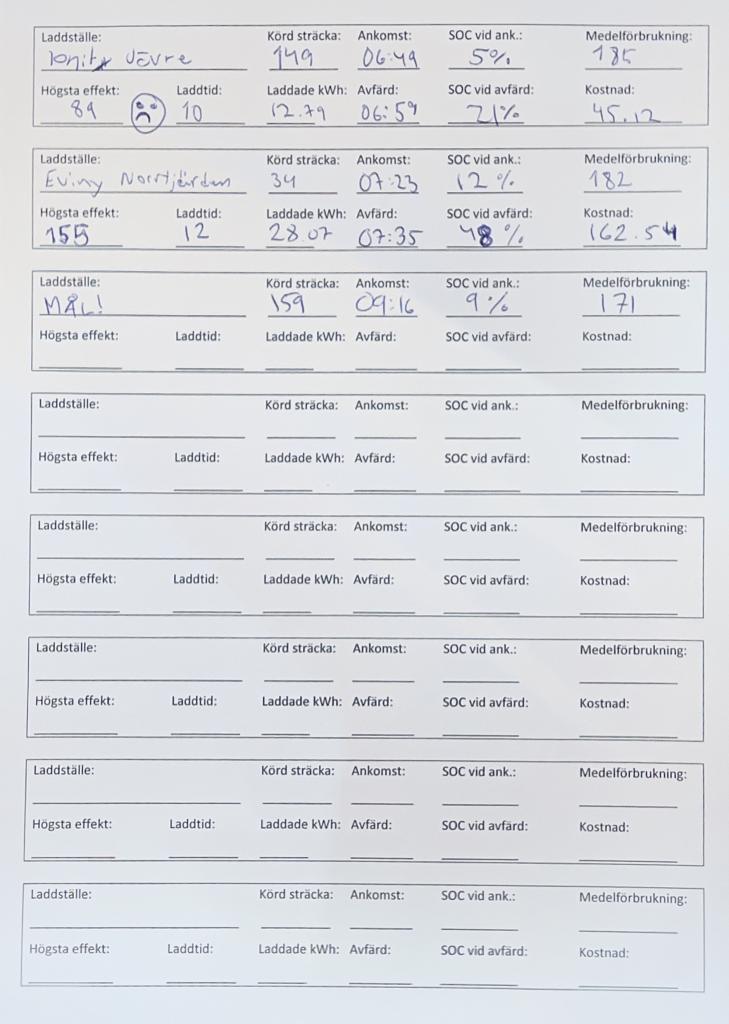 Laddställe: Körd sträcka: Ankomst: SOC vid ank.: Medelförbrukning:
Ionity Jävre 149 06:49 5% 185
Högsta effekt: Laddtid: Laddade kWh: Avfärd: SOC vid avfärd: Kostnad:
89 10 12.79 06:59 21% 45.12
Laddställe: Körd sträcka: Ankomst: SOC vid ank.: Medelförbrukning:
Eviny Norrfjärden 34 07:23 12% 182
Högsta effekt: Laddtid: Laddade kWh: Avfärd: SOC vid avfärd: Kostnad:
155 12 28.07 07:35 48% 162.54
Laddställe: Körd sträcka: Ankomst: SOC vid ank.: Medelförbrukning:
MÅL! 159 09:16 9% 171
Högsta effekt: Laddtid: Laddade kWh: Avfärd: SOC vid avfärd: Kostnad:
Laddställe: Körd sträcka: Ankomst: SOC vid ank.: Medelförbrukning:
Högsta effekt: Laddtid: Laddade kWh: Avfärd: SOC vid avfärd: Kostnad:
Laddställe: Körd sträcka: Ankomst: SOC vid ank.: Medelförbrukning:
Högsta effekt: Laddtid: Laddade kWh: Avfärd: SOC vid avfärd: Kostnad:
Laddställe: Körd sträcka: Ankomst: SOC vid ank.: Medelförbrukning:
Högsta effekt: Laddtid: Laddade kWh: Avfärd: SOC vid avfärd: Kostnad:
Laddställe: Körd sträcka: Ankomst: SOC vid ank.: Medelförbrukning:
Högsta effekt: Laddtid: Laddade kWh: Avfärd: SOC vid avfärd: Kostnad:
Laddställe: Körd sträcka: Ankomst: SOC vid ank.: Medelförbrukning:
Högsta effekt: Laddtid: Laddade kWh: Avfärd: SOC vid avfärd: Kostnad: